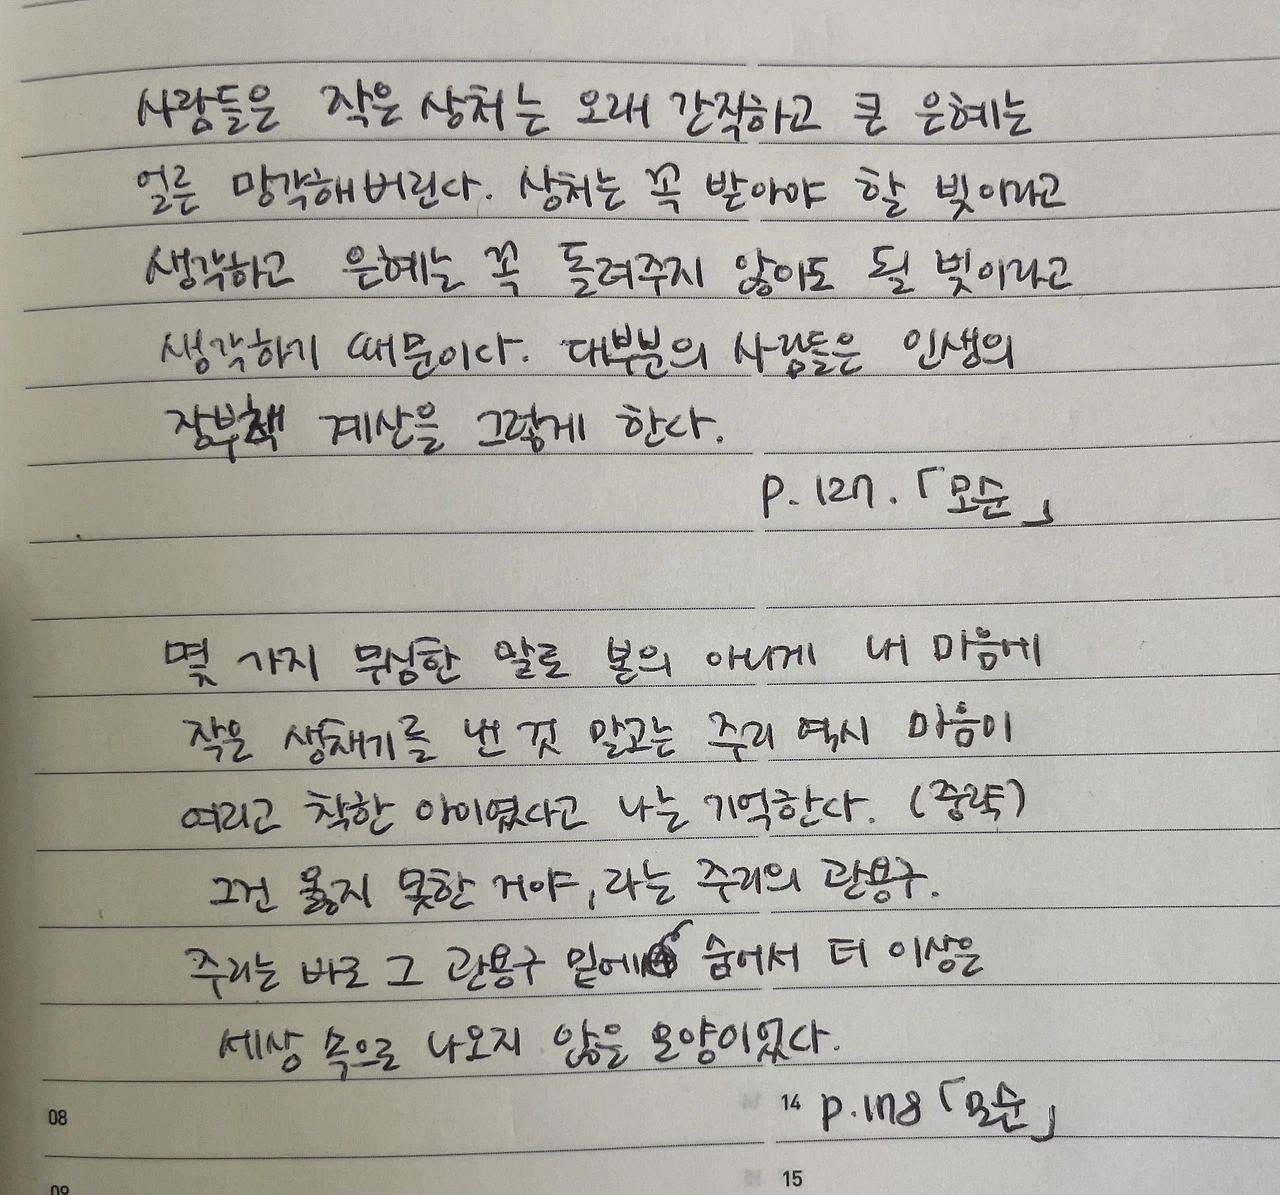 사람들은 작은 상처는 오래 간직하고 큰 은혜는
얼른 망각해버린다. 상처는 꼭 받아야 할 빚이라고
생각하고 은혜는 꼭 돌려주지 않아도 될 빚이라고
생각하기 때문이다. 대부분의 사람들은 인생의
장부책 계산을 그렇게 한다.
p. 127. 「모순」
몇 가지 무심한 말로 본의 아니게 내 마음에
작은 생채기를 낸 것 말고는 주리 역시 마음이
여리고 착한 아이였다고 나는 기억한다. (중략)
그건 옳지 못한 거야, 라는 주리의 관용구.
주리는 바로 그 관용구 밑에 숨어서 더 이상은
세상 속으로 나오지 않을 모양이었다.
08
14 p.178 「모순」
15
09